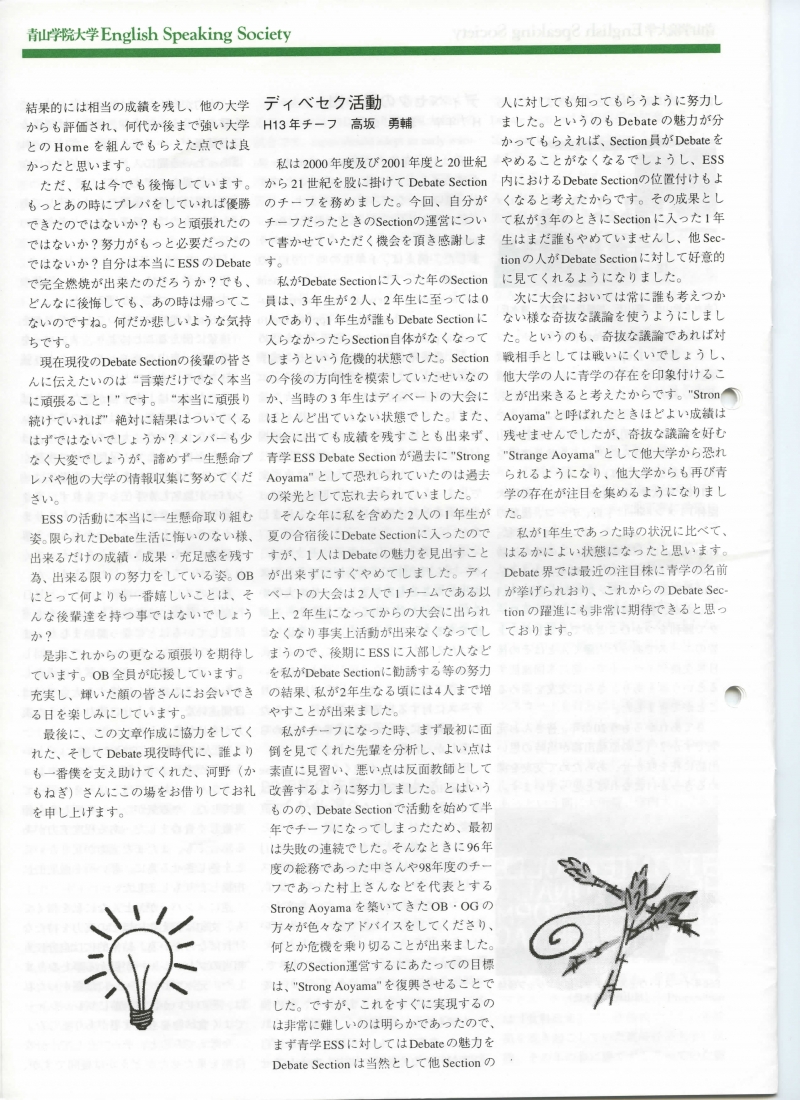 青山学院大学 English Speaking Society
結果的には相当の成績を残し、他の大学
からも評価され、何代か後まで強い大学
との Home を組んでもらえた点では良
かったと思います。
ただ、私は今でも後悔しています。
もっとあの時にプレパをしていれば優勝
できたのではないか？もっと頑張れたの
ではないか？努力がもっと必要だったの
ではないか？自分は本当にESSのDebate
で完全燃焼が出来たのだろうか？でも、
どんなに後悔しても、あの時は帰ってこ
ないのですね。何だか悲しいような気持
ちです。
現在現役のDebate Sectionの後輩の皆さ
んに伝えたいのは “言葉だけでなく本当
に頑張ること！” です。 “本当に頑張り
続けていれば” 絶対に結果はついてくる
はずではないでしょうか？メンバーも少
なく大変でしょうが、諦めず一生懸命プ
レパや他の大学の情報収集に努めてくだ
さい。
ESS の活動に本当に一生懸命取り組む
姿。限られたDebate生活に悔いのない様、
出来るだけの成績・成果・充足感を残す
為、出来る限りの努力をしている姿。OB
にとって何よりも一番嬉しいことは、そ
んな後輩達を持つ事ではないでしょう
か？
是非これからの更なる頑張りを期待し
ています。OB 全員が応援しています。
充実し、輝いた顔の皆さんにお会いでき
る日を楽しみにしています。
最後に、この文章作成に協力をしてく
れた、そして Debate 現役時代に、誰より
も一番僕を支え助けてくれた、河野（か
もねぎ）さんにこの場をお借りしてお礼
を申し上げます。
ディベセク活動
H13 年チーフ　高坂　勇輔
私は 2000 年度及び 2001 年度と 20 世紀
から 21 世紀を股に掛けて Debate Section
のチーフを務めました。今回、自分が
チーフだったときのSectionの運営につい
て書かせていただく機会を頂き感謝しま
す。
私がDebate Sectionに入った年のSection
員は、3 年生が 2 人、2 年生に至っては 0
人であり、1 年生が誰も Debate Section に
入らなかったらSection自体がなくなって
しまうという危機的状態でした。Section
の今後の方向性を模索していたせいなの
か、当時の 3 年生はディベートの大会に
ほとんど出ていない状態でした。また、
大会に出ても成績を残すことも出来ず、
青学 ESS Debate Section が過去に "Strong
Aoyama" として恐れられていたのは過去
の栄光として忘れ去られていました。
そんな年に私を含めた 2 人の 1 年生が
夏の合宿後にDebate Sectionに入ったので
すが、1 人は Debate の魅力を見出すこと
が出来ずにすぐやめてしました。ディ
ベートの大会は 2 人で 1 チームである以
上、2 年生になってからの大会に出られ
なくなり事実上活動が出来なくなってし
まうので、後期に ESS に入部した人など
を私がDebate Sectionに勧誘する等の努力
の結果、私が2年生なる頃には4人まで増
やすことが出来ました。
私がチーフになった時、まず最初に面
倒を見てくれた先輩を分析し、よい点は
素直に見習い、悪い点は反面教師として
改善するように努力しました。とはいう
ものの、Debate Section で活動を始めて半
年でチーフになってしまったため、最初
は失敗の連続でした。そんなときに 96 年
度の総務であった中さんや98年度のチー
フであった村上さんなどを代表とする
Strong Aoyama を築いてきた OB・OG の
方々が色々なアドバイスをしてくださり、
何とか危機を乗り切ることが出来ました。
私のSection運営するにあたっての目標
は、"Strong Aoyama" を復興させることで
した。ですが、これをすぐに実現するの
は非常に難しいのは明らかであったので、
まず青学ESSに対してはDebateの魅力を
Debate Section は当然として他 Section の
人に対しても知ってもらうように努力し
ました。というのも Debate の魅力が分
かってもらえれば、Section 員が Debate を
やめることがなくなるでしょうし、ESS
内におけるDebate Sectionの位置付けもよ
くなると考えたからです。その成果とし
て私が 3 年のときに Section に入った 1 年
生はまだ誰もやめていませんし、他 Sec-
tion の人が Debate Section に対して好意的
に見てくれるようになりました。
次に大会においては常に誰も考えつか
ない様な奇抜な議論を使うようにしまし
た。というのも、奇抜な議論であれば対
戦相手としては戦いにくいでしょうし、
他大学の人に青学の存在を印象付けるこ
とが出来きると考えたからです。"Stron
Aoyama" と呼ばれたときほどよい成績は
残せませんでしたが、奇抜な議論を好む
"Strange Aoyama" として他大学から恐れ
られるようになり、他大学からも再び青
学の存在が注目を集めるようになりまし
た。
私が1年生であった時の状況に比べて、
はるかによい状態になったと思います。
Debate 界では最近の注目株に青学の名前
が挙げられおり、これからの Debate Sec-
tion の躍進にも非常に期待できると思っ
ております。